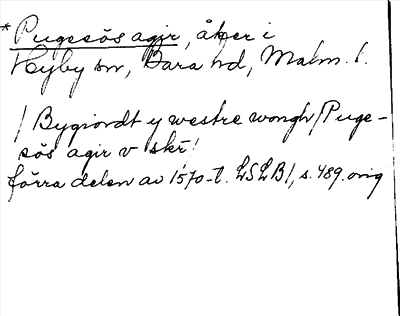 * Pugesös agir, åker i
Hyby sn, Bara hd, Malm. l.
/ Bygiordt y westre wongh / Puge-
sös agir v skr /
förra delen av 1570-t. LSLB1, s. 489. orig